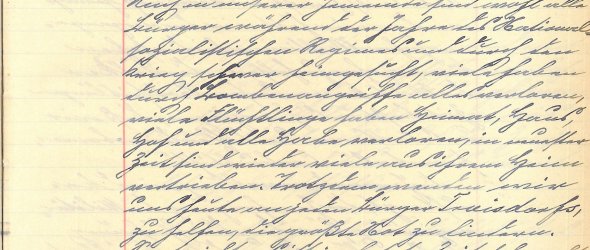 Auch in unserer Gemeinde sind wohl alle
Bürger während der Jahre des National-
sozialistischen Regimes und durch den
Krieg schwer heimgesucht, viele haben
durch Bombenangriffe alles verloren,
viele Flüchtlinge haben Heimat, Haus,
Hof und alle Habe verloren, in neuster
Zeit sind wieder viele aus ihrem Heim
vertrieben. Trotzdem wenden wir
uns heute an jeden Bürger Troisdorfs,
zu helfen, die größte Not zu lindern.